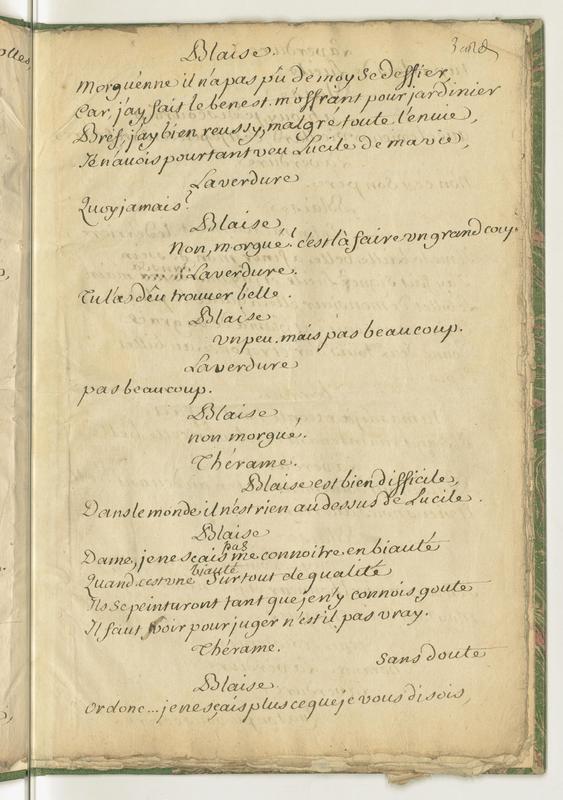 Blaise.
morguenne il n'a pas pû de moy se deffier,
Car j'ay fait le benest m'offrant pour jardinier
Bref, j'ay bien reussy, malgré toute l'envie,
Je n'avois pourtant veu Lucile de ma vie,
Laverdure
Quoy jamais?
Blaise,
non, morgué! c'est là faire vn grand coup.
Laverdure.
Tu l'as dêu trouver belle.
Blaise
vn peu. mais pas beaucoup.
Laverdure
pas beaucoup.
Blaise
non morgué.
Thérame.
Blaise est bien difficile,
Dans le monde il n'est rien au dessus de Lucile.
Blaise
pas
Dame, je ne sçais me connoitre en biauté
biauté
Quand c'est vne surtout de qualité
Ils se peinturont tant que je n'y connois goute
Il faut voir pour juger n'est il pas vray.
Thérame.
Sans doute
Blaise
or donc... je ne sçais plus ce que je vous disois,